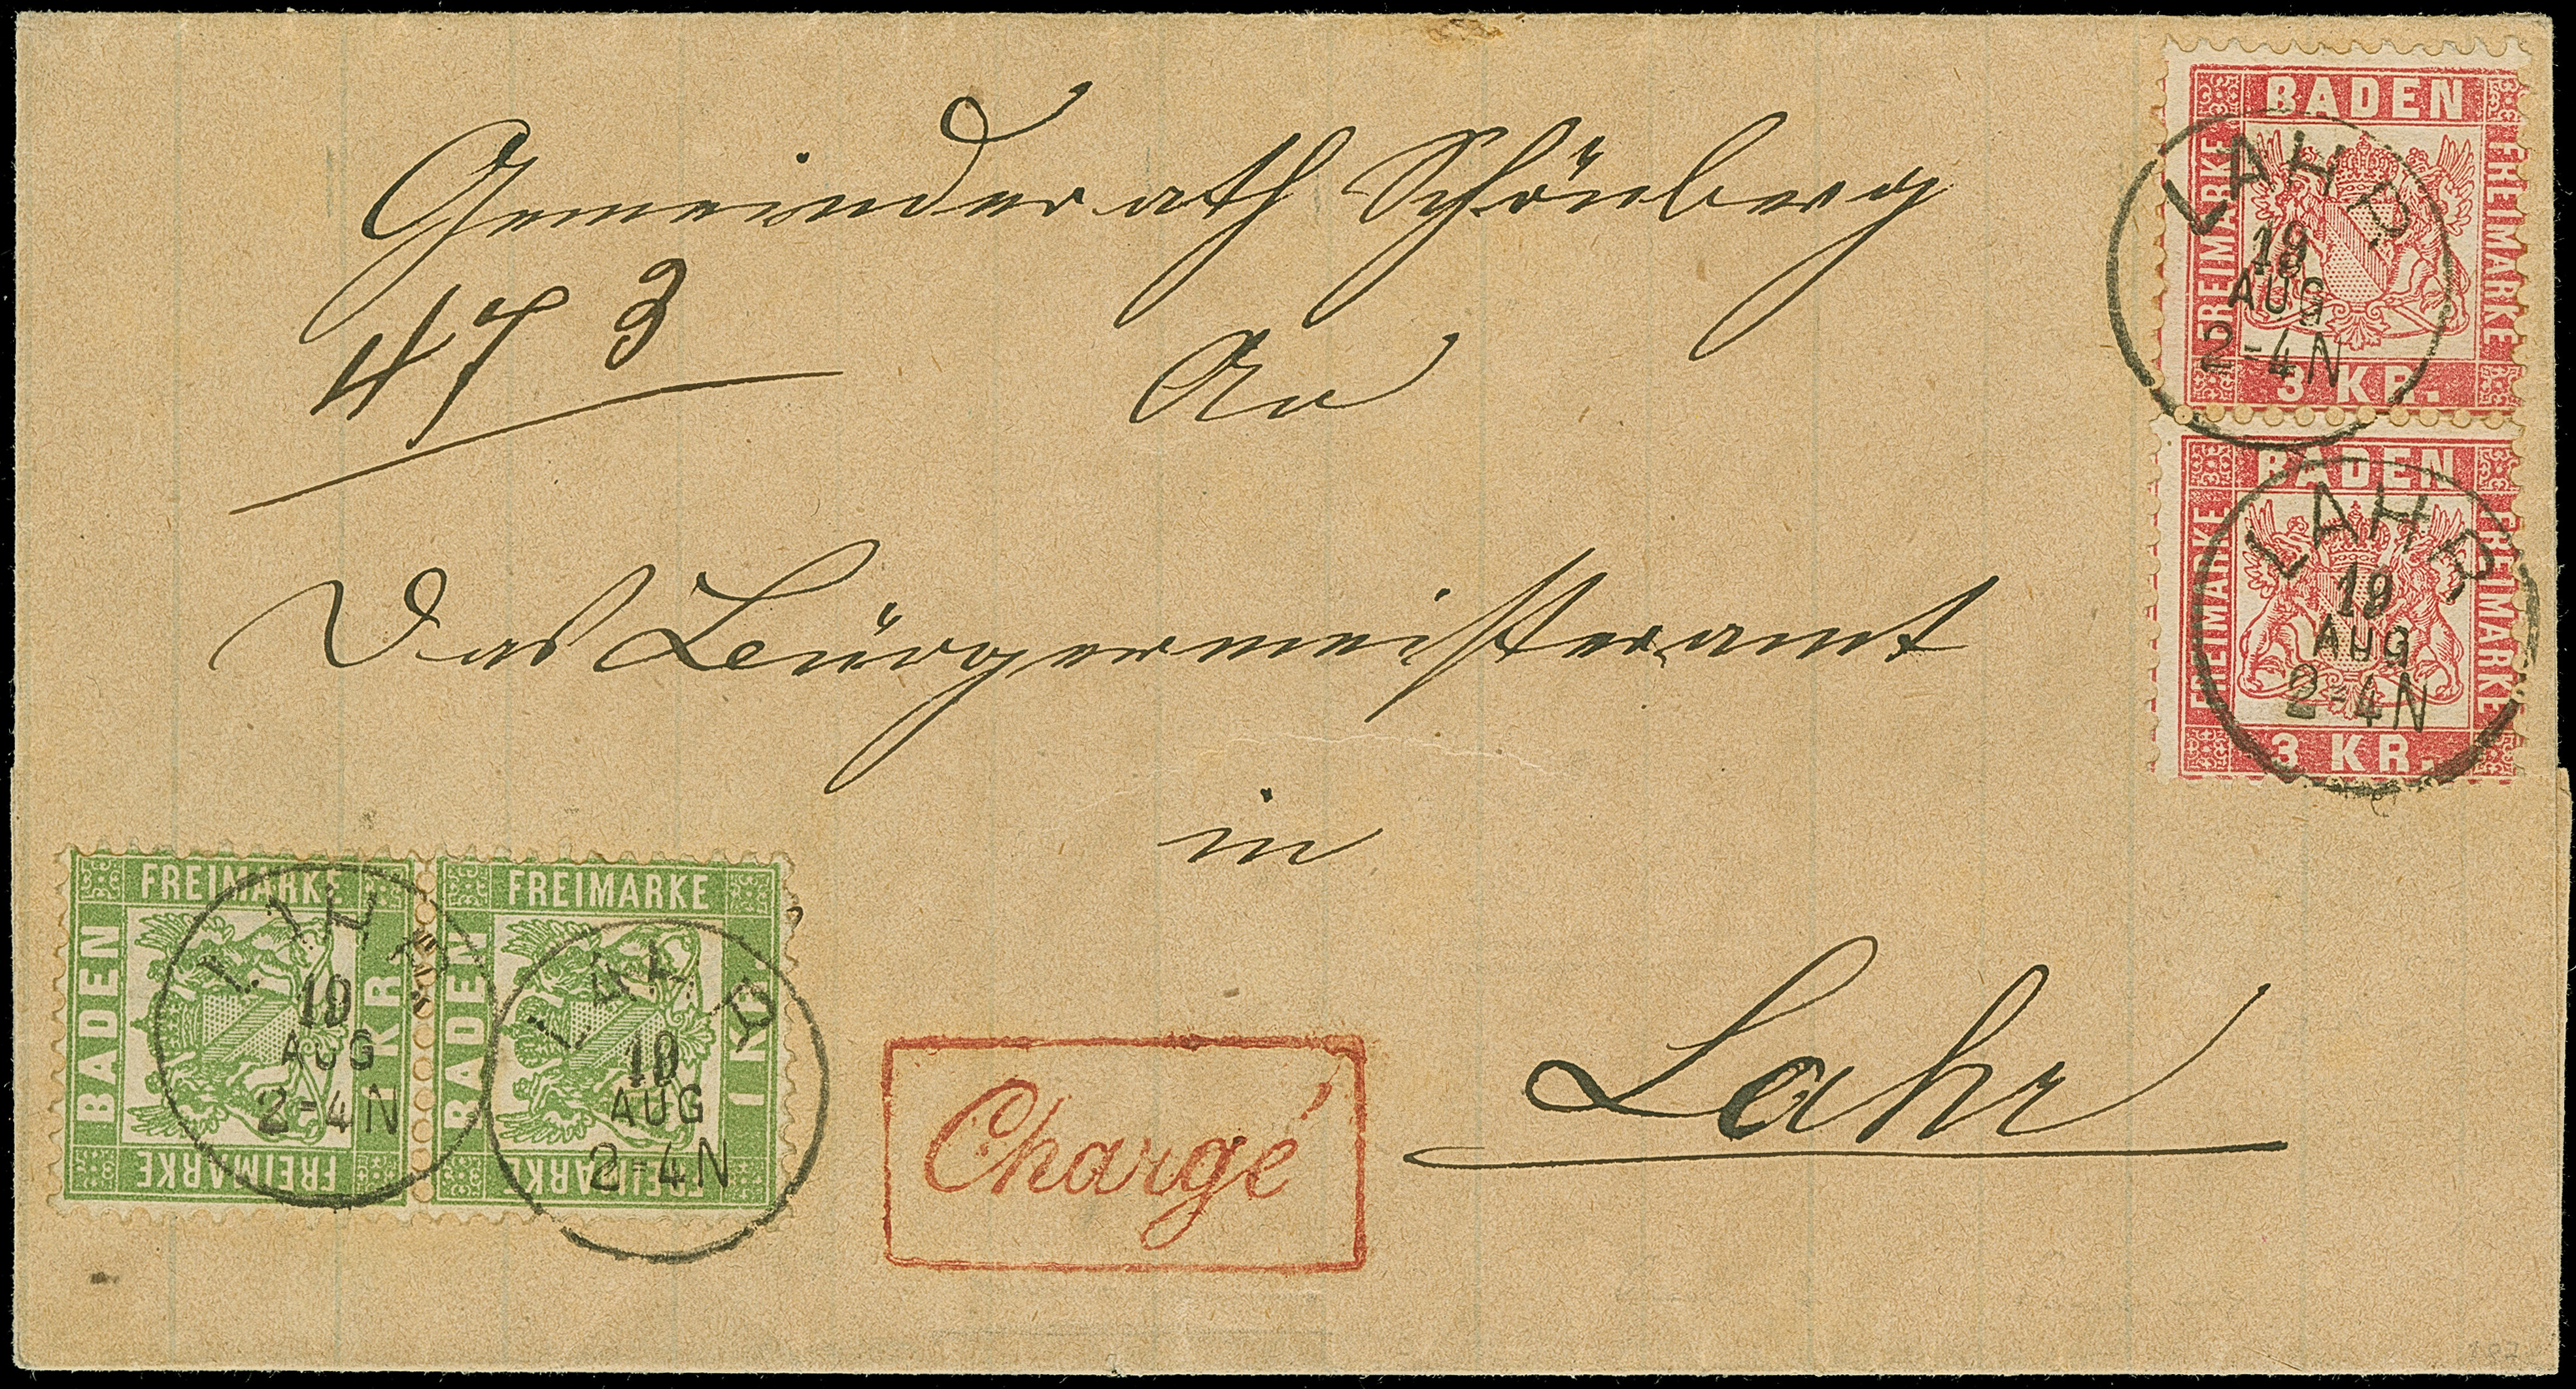 Gemeinderath Schönberg
473
An
Das Bürgermeisteramt
in
Lahr
Chargé
BADEN
FREIMARKE
FREIMARKE
3 KR.
LAHR
19
AUG
2-4N
BADEN
FREIMARKE
FREIMARKE
3 KR.
LAHR
19
AUG
2-4N
FREIMARKE
BADEN
1 KR.
FREIMARKE
LAHR
19
AUG
2-4N
FREIMARKE
BADEN
1 KR.
FREIMARKE
LAHR
19
AUG
2-4N